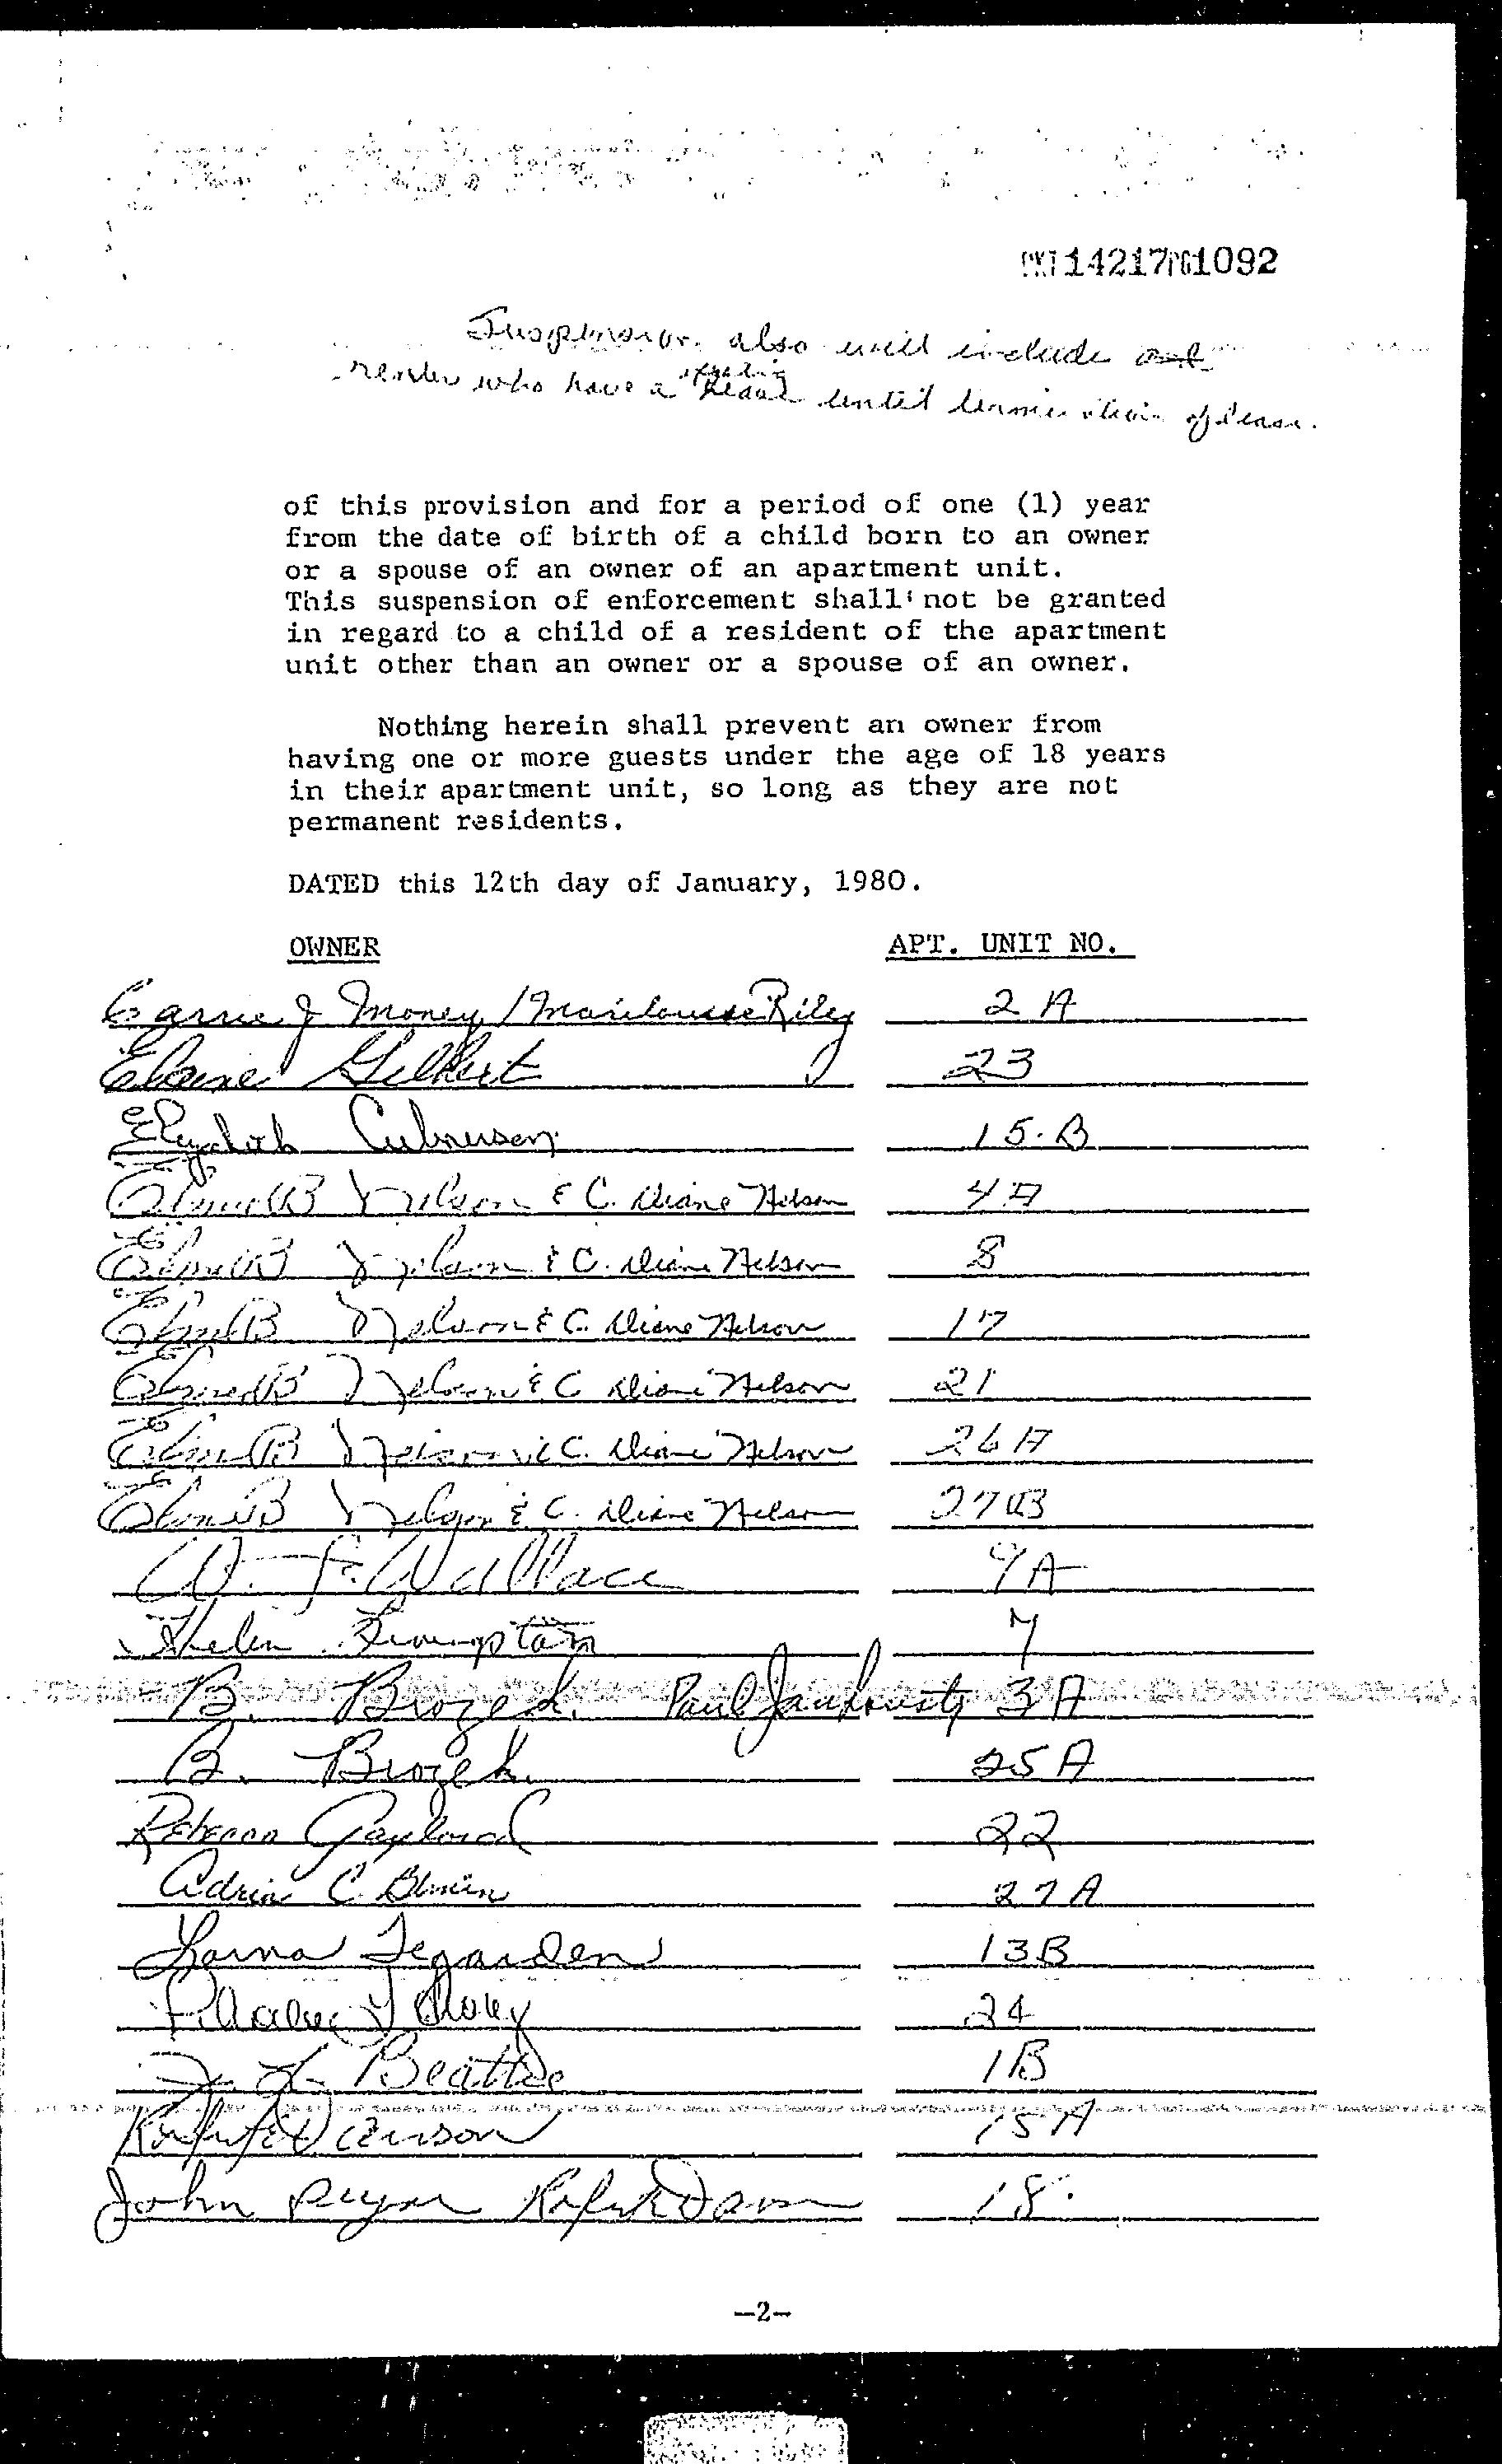 DKT14217PG1092
Suspension also will include
renter who have a existing lease until termination of lease.
of this provision and for a period of one (1) year
from the date of birth of a child born to an owner
or a spouse of an owner of an apartment unit.
This suspension of enforcement shall not be granted
in regard to a child of a resident of the apartment
unit other than an owner or a spouse of an owner.
Nothing herein shall prevent an owner from
having one or more guests under the age of 18 years
in their apartment unit, so long as they are not
permanent residents.
DATED this 12th day of January, 1980.
OWNER APT. UNIT NO.
Money / Marilouise Riley 2 A
Elaine Gilbert 23
Elizabeth 15.B
Nelson & C. Diane Nelson 4A
Nelson & C. Diane Nelson 8
Nelson & C. Diane Nelson 17
Nelson & C. Diane Nelson 21
Nelson & C. Diane Nelson 26A
Nelson & C. Diane Nelson 27B
Wallace 9A
Helen 7
B. Brozek Paul 3A
B. Brozek 25A
Rebecca Gaylord 22
C. 27A
Lorna Tegarden 13B
24
Beattie 1B
15A
John 18.
-2-